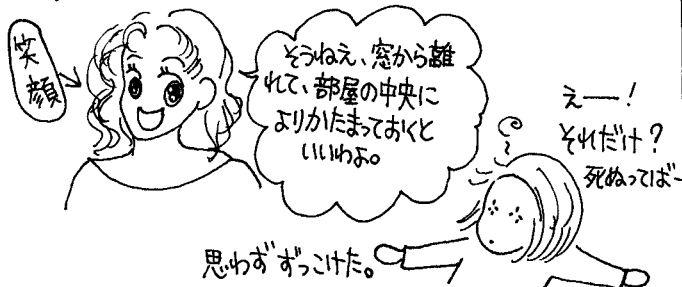 笑顔
そうねえ、窓から離
れて、部屋の中央に
よりかたまっておくと
いいわよ。
えー！
それだけ？
死ぬってばー
思わずずっこけた。